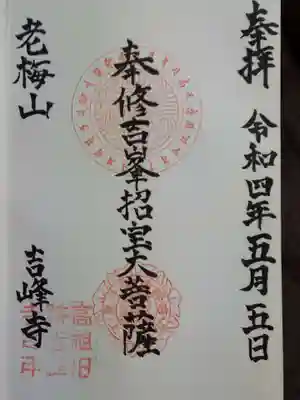 奉拝 令和四年五月五日
奉修吉峯招宝大菩薩
老梅山 吉峰寺